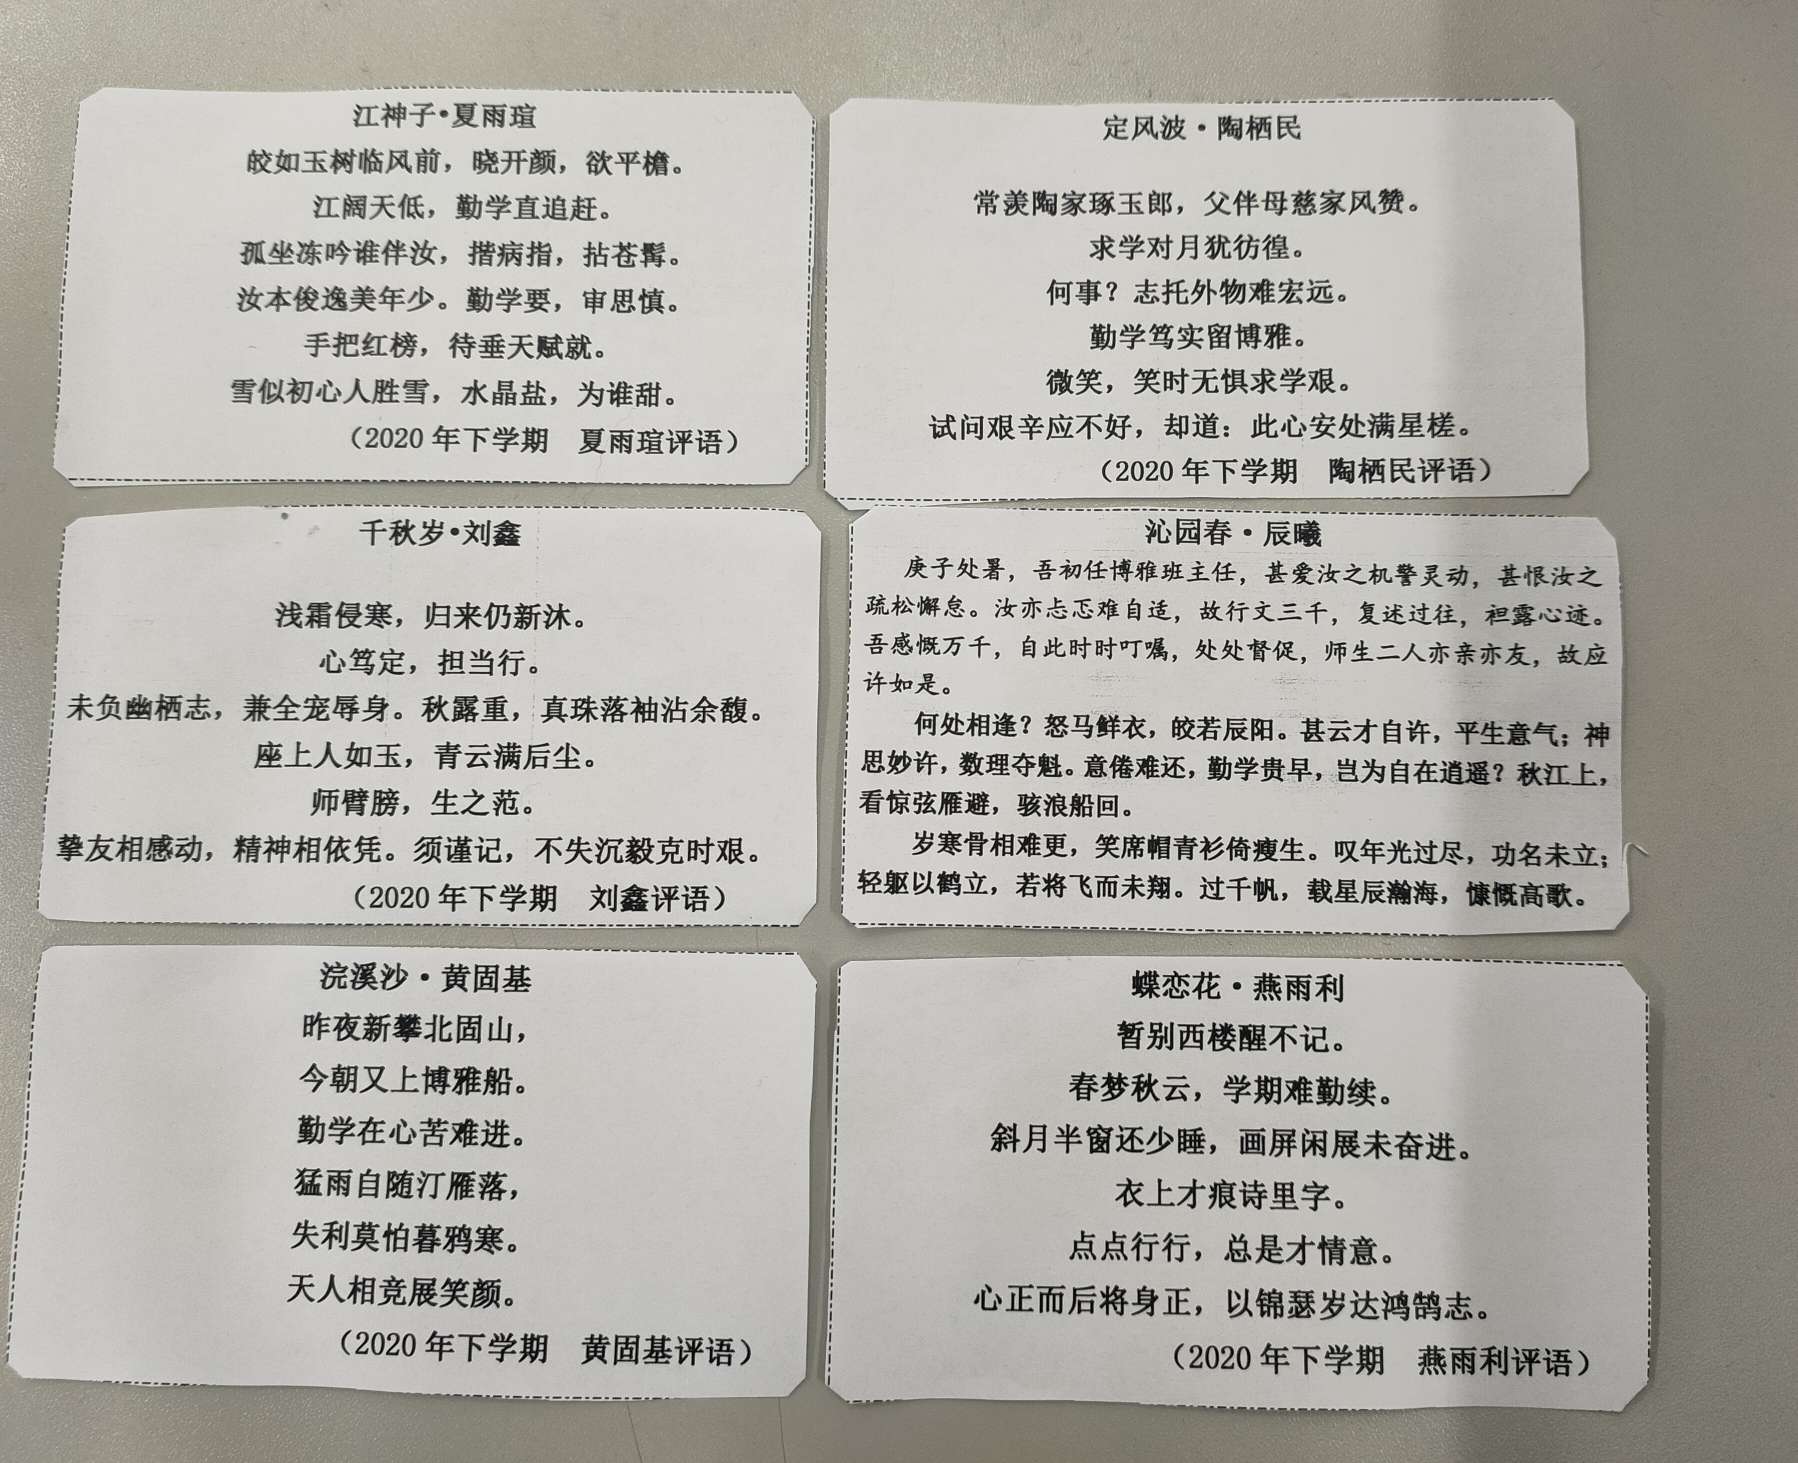 江神子•夏雨瑄
皎如玉树临风前，晓开颜，欲平檐。
江阔天低，勤学直追赶。
孤坐冻吟谁伴汝，揩病指，拈苍髯。
汝本俊逸美年少。勤学要，审思慎。
手把红榜，待垂天赋就。
雪似初心人胜雪，水晶盐，为谁甜。
（2020 年下学期　夏雨瑄评语）
定风波·陶栖民
常羡陶家琢玉郎，父伴母慈家风赞。
求学对月犹彷徨。
何事？志托外物难宏远。
勤学笃实留博雅。
微笑，笑时无惧求学艰。
试问艰辛应不好，却道：此心安处满星槎。
（2020 年下学期　陶栖民评语）
千秋岁•刘鑫
浅霜侵寒，归来仍新沐。
心笃定，担当行。
未负幽栖志，兼全宠辱身。秋露重，真珠落袖沾余馥。
座上人如玉，青云满后尘。
师臂膀，生之范。
挚友相感动，精神相依凭。须谨记，不失沉毅克时艰。
（2020 年下学期　刘鑫评语）
沁园春·辰曦
庚子处暑，吾初任博雅班主任，甚爱汝之机警灵动，甚恨汝之
疏松懈怠。汝亦忐忑难自适，故行文三千，复述过往，袒露心迹。
吾感慨万千，自此时时叮嘱，处处督促，师生二人亦亲亦友，故应
许如是。
何处相逢？怒马鲜衣，皎若辰阳。甚云才自许，平生意气；神
思妙许，数理夺魁。意倦难还，勤学贵早，岂为自在逍遥？秋江上，
看惊弦雁避，骇浪船回。
岁寒骨相难更，笑席帽青衫倚瘦生。叹年光过尽，功名未立；
轻躯以鹤立，若将飞而未翔。过千帆，载星辰瀚海，慷慨高歌。
浣溪沙·黄固基
昨夜新攀北固山，
今朝又上博雅船。
勤学在心苦难进。
猛雨自随汀雁落，
失利莫怕暮鸦寒。
天人相竞展笑颜。
（2020 年下学期　黄固基评语）
蝶恋花·燕雨利
暂别西楼醒不记。
春梦秋云，学期难勤续。
斜月半窗还少睡，画屏闲展未奋进。
衣上才痕诗里字。
点点行行，总是才情意。
心正而后将身正，以锦瑟岁达鸿鹄志。
（2020 年下学期　燕雨利评语）